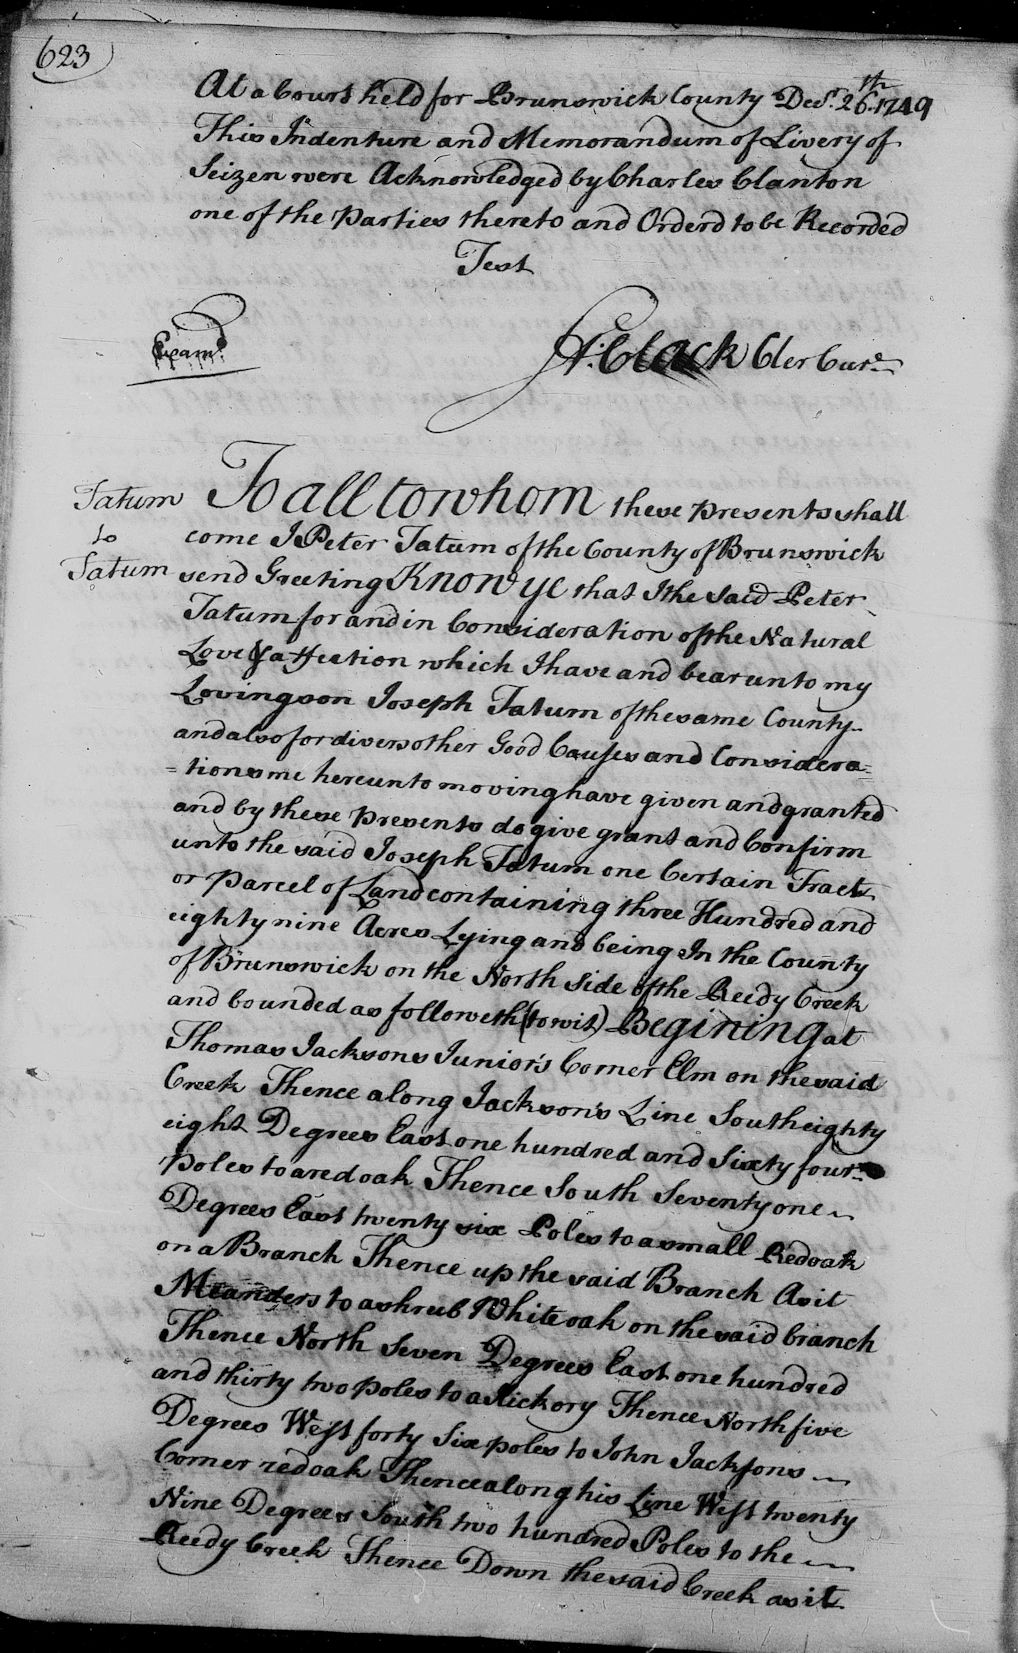 623
At a Court held for Brunswick County Decr. 26th. 1749
This Indenture and Memorandum of Livery of
Seizen were Acknowledged by Charles Clanton
one of the Parties thereto and Orderd to be Recorded
Test
Examd.
Clack Cler Cure
Tatum
to
Tatum
To all to whom these presents shall
come I Peter Tatum of the County of Brunswick
send Greeting Know ye that I the said Peter
Tatum for and in Consideration of the Natural
Love & affection which I have and bear unto my
Loving son Joseph Tatum of the same County
and also for divers other Good Causes and Considera=
=tions me hereunto moving have given and granted
and by these presents do give grant and Confirm
unto the said Joseph Tatum one Certain Tract
or Parcel of Land containing three Hundred and
eighty nine Acres Lying and being In the County
of Brunswick on the North Side of the Reedy Creek
and bounded as followeth (to wit) Begining at
Thomas Jacksons Junior's Corner Elm on the said
Creek Thence along Jackson's Line South eighty
eight Degrees East one hundred and Sixty four
poles to a red oak Thence South Seventy one
Degrees East twenty six Poles to a small Red oak
on a Branch Thence up the said Branch As it
Meanders to a shrub White oak on the said branch
Thence North Seven Degrees East one hundred
and thirty two poles to a Hickory Thence North five
Degrees West forty Six poles to John Jacksons
Corner red oak Thence along his Line West twenty
Nine Degrees South two hundred Poles to the
Reedy Creek Thence Down the said Creek as it